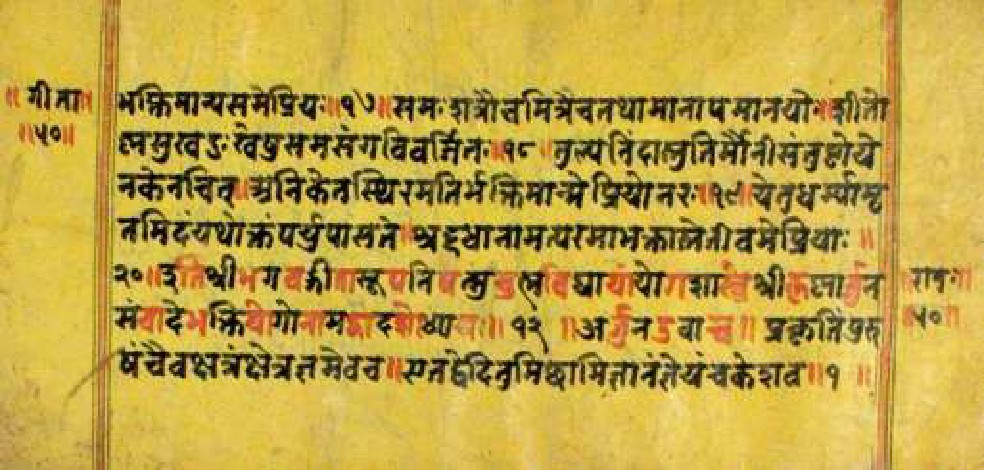 ॥ गीता॥
॥५०॥
भक्तिमान्यसमेप्रियः॥१७॥समःशत्रौचमित्रेचतथामानापमानयोः॥शीतो
ष्मसुखदुःखेषुसमसंगविवर्जितः॥१८॥तुल्यनिंदास्तुतिर्मौनीसंतुष्टोये
नकेनचित्॥अनिकेतस्थिरमतिर्भक्तिमान्मेप्रियोनरः॥१९॥येतुधर्म्यामृ
तमिदंयथोक्तंपर्युपासते॥श्रद्दधानामत्परमाभक्तास्तेतीवमेप्रियाः॥
२०॥इतिश्रीभगवद्गीतासूपनिषत्सुब्रह्मविद्यायांयोगशास्त्रेश्रीकृष्णार्जुन
संवादेभक्तियोगोनामद्वादशोध्यायः॥ १२ ॥अर्जुनउवाच॥ प्रकृतिंपुरु
षंचैवक्षेत्रंक्षेत्रज्ञमेवच॥एतद्वेदितुमिच्छामिज्ञानंज्ञेयंचकेशव॥१॥
रामः॥
॥५०॥